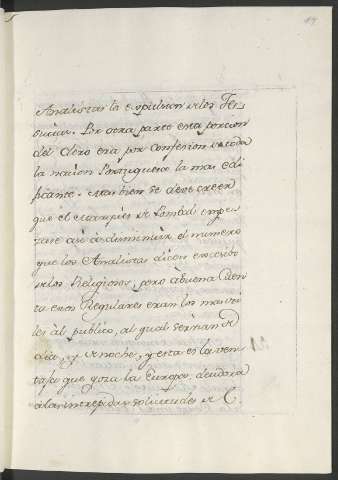 Analistas la expulsion de los Jes-
uitas. Por otra parte esta porcion
del Clero era por confesion de toda
la nacion Portuguesa la mas edi-
ficante. Mas bien se debe creer
que el Marques de Pombal empe-
zase asi a disminuir el numero
que los Analistas dicen excesivo
de los Religiosos, pero à buena Cuen-
ta esos Regulares eran los mas uti-
les al publico, al qual servian de
dia, y de noche, y esta es la ven-
taja que goza la Europa, deudora
à las intrepidas solicitudes de